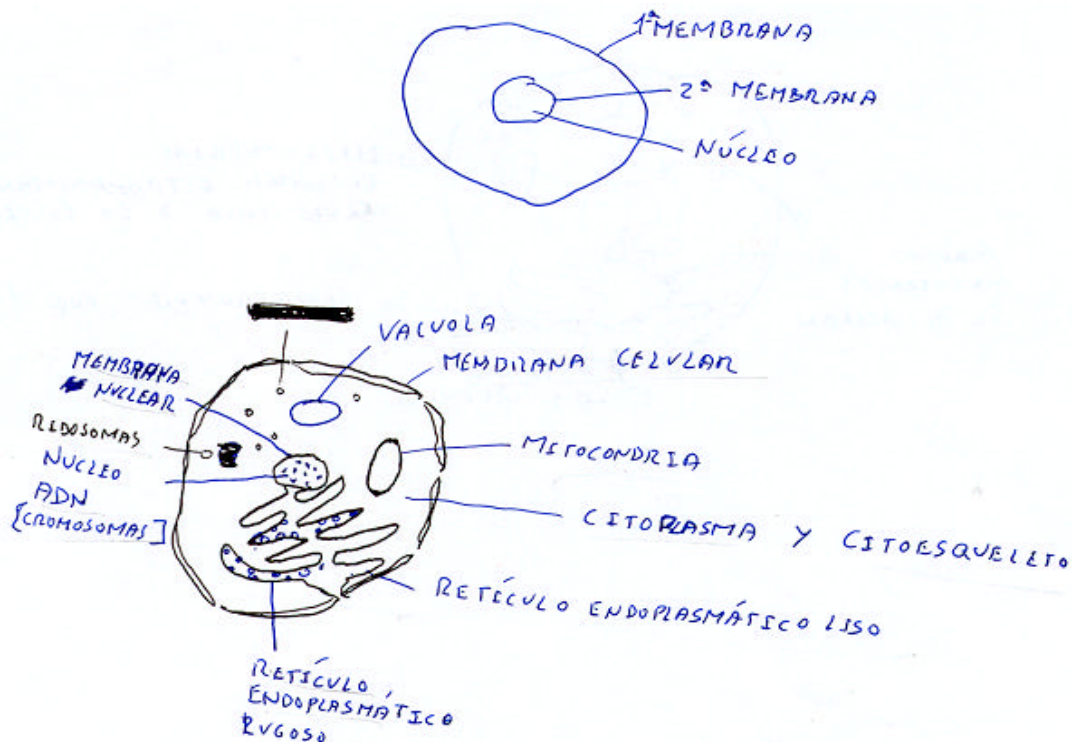 1ª MEMBRANA
2ª MEMBRANA
NÚCLEO
VACUOLA
MEMBRANA CELULAR
MEMBRANA
NUCLEAR
RIBOSOMAS
NUCLEO
ADN
[CROMOSOMAS]
MITOCONDRIA
CITOPLASMA Y CITOESQUELETO
RETÍCULO ENDOPLASMÁTICO LISO
RETÍCULO
ENDOPLASMÁTICO
RUGOSO